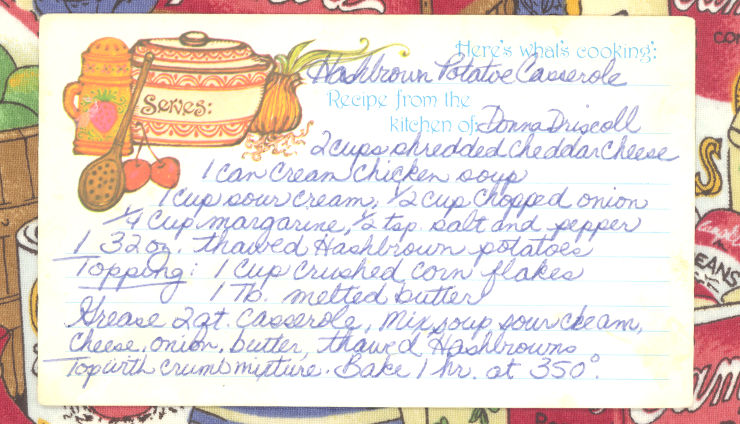 Here's what's cooking:
Hashbrown Potatoe Casserole
Serves:
Recipe from the
kitchen of: Donna Driscoll
2 cups shredded cheddar cheese
1 can cream chicken soup
1 cup sour cream, 1/2 cup chopped onion
1/4 cup margarine, 1/2 tsp. salt and pepper
1 32 oz. thawed Hashbrown potatoes
Topping: 1 cup crushed corn flakes
1 Tb. melted butter
Grease 2 qt. casserole, mix soup, sour cream,
cheese, onion, butter, thawed Hashbrowns
Top with crumb mixture. Bake 1 hr. at 350°.
EANS